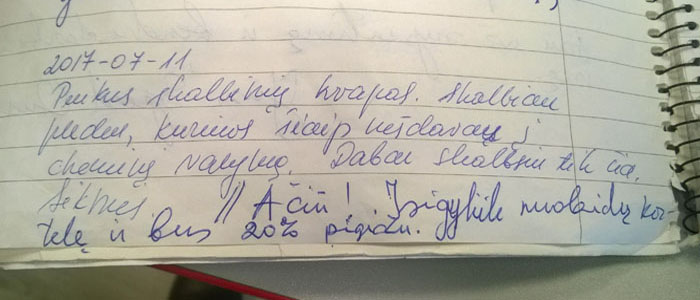 2017-07-11
Puikus skalbinių kvapas. Skalbiau
pledus, kuriuos šiaip nešdavau į
cheminį valymą. Dabar skalbsiu tik čia.
Sėkmės // Ačiū! Įsigykite nuolaidų kor-
telę ir bus 20% pigiau.